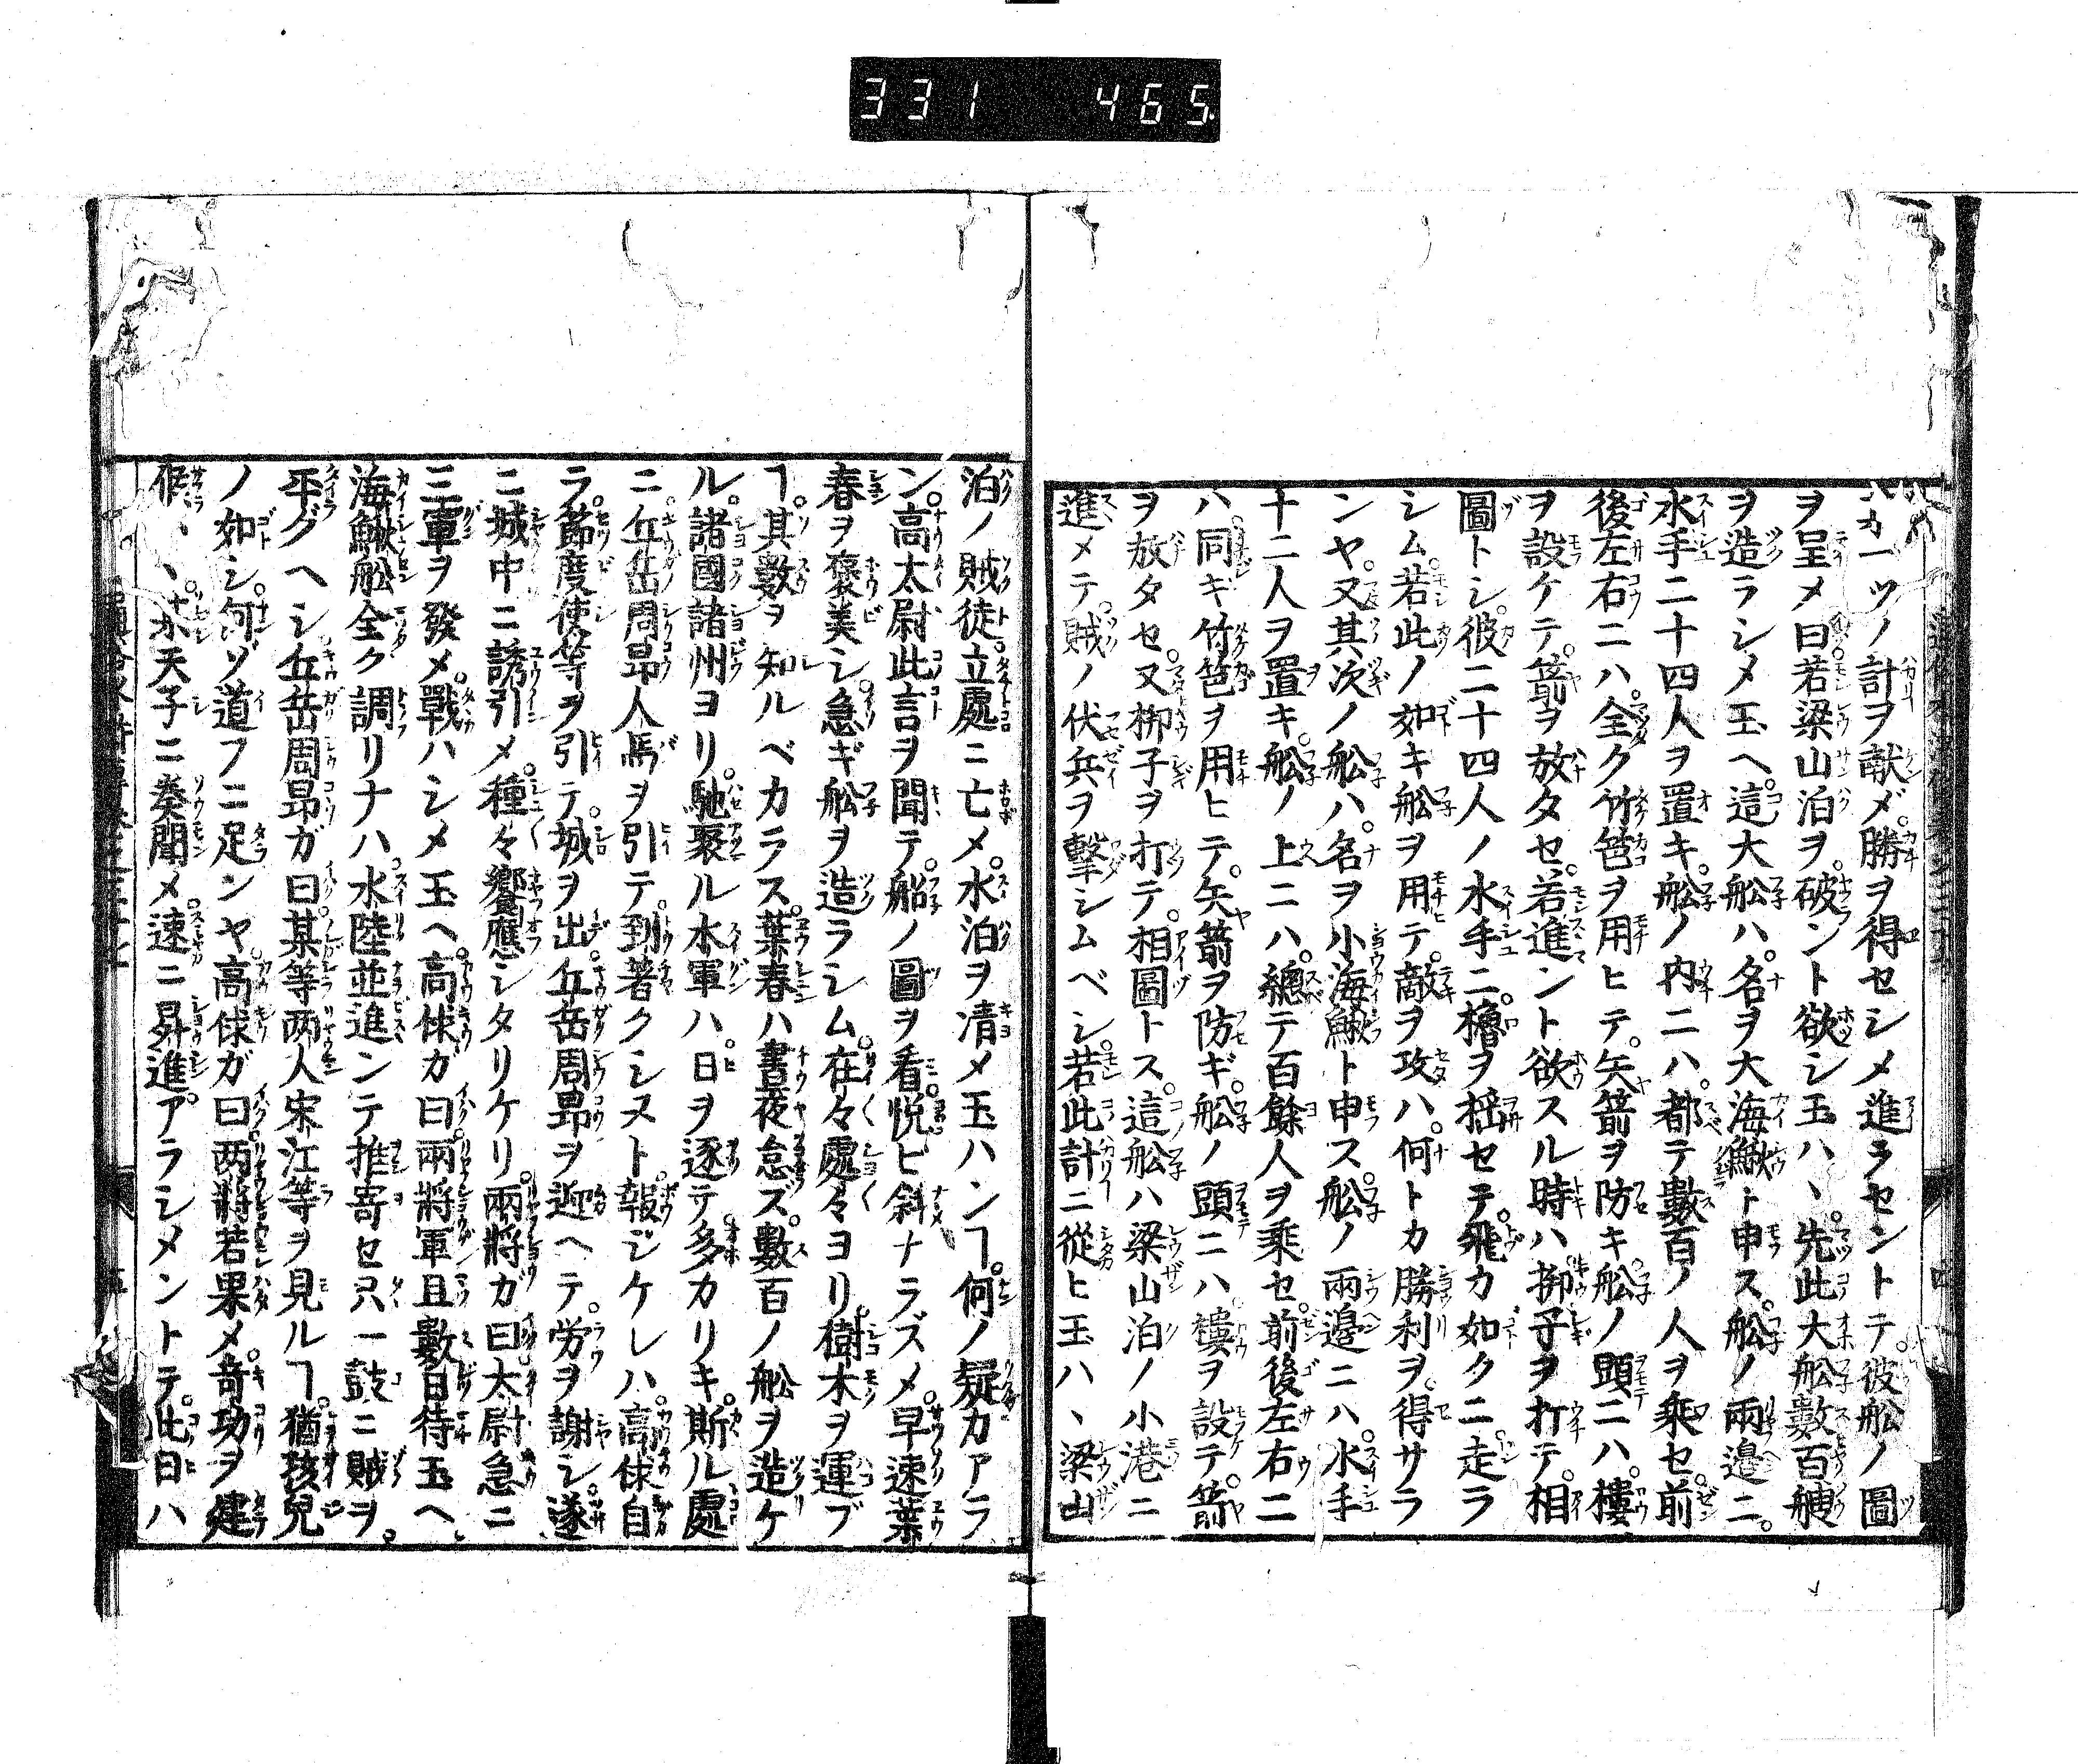 331 465
一ツノ計ヲ献メ勝ヲ得セシメ進ラセントテ。彼舩ノ圖
ヲ呈メ曰若梁山泊ヲ。破ント欲シ玉ハヽ。先此大舩數百艘
ヲ造ラシメ玉ヘ。這大舩ハ。名ヲ大海鰍ト申ス。舩ノ兩邉ニ。
水手二十四人ヲ置キ。舩ノ内ニハ。都テ數百ノ人ヲ乘セ。前
後左右ニハ。全ク竹笆ヲ用ヒテ。矢箭ヲ防キ。舩ノ頭ニハ。樓
ヲ設ケテ。箭ヲ放タセ。若進ント欲スル時ハ。梆子ヲ打テ。相
圖トシ。彼二十四人ノ水手ニ。櫓ヲ揺セテ。飛カ如クニ走ラ
シム。若此ノ如キ舩ヲ用テ。敵ヲ攻ハ。何トカ勝利ヲ。得サラ
ンヤ。又其次ノ舩ハ。名ヲ小海鰍ト申ス。舩ノ兩邉ニハ。水手
十二人ヲ置キ。舩ノ上ニハ。總テ百餘人ヲ乘セ。前後左右ニ
ハ。同ギ竹笆ヲ用ヒテ。矢箭ヲ防ギ。舩ノ頭ニハ。樓ヲ設テ。箭
ヲ放タセ。又梆子ヲ打テ。相圖トス。這舩ハ梁山泊ノ小港ニ
進メテ。賊ノ伏兵ヲ撃シムベシ。若此計ニ從ヒ玉ハヽ梁山
泊ノ賊徒。立處ニ亡メ。水泊ヲ清メ玉ハンヿ。何ノ疑カアラ
ン。高太尉此言ヲ聞テ。船ノ圖ヲ看。悦ビ斜ナラズメ。早速葉
春ヲ褒美シ。急ギ舩ヲ造ラシム。在々處々ヨリ。樹木ヲ運ブ
ヿ。其數ヲ知ルベカラス。葉春ハ晝夜怠ズ。數百ノ舩ヲ造ケ
ル。諸國諸州ヨリ。馳聚ル水軍ハ。日ヲ逐テ。多カリキ。斯ル處
ニ。丘岳周昂人馬ヲ引テ。到著クシヌト。報ジケレハ。高俅自
ラ。節度使等ヲ引テ。城ヲ出。丘岳周昂ヲ迎ヘテ。労ヲ謝シ。遂
ニ城中ニ誘引メ。種々饗應シタリケリ。兩將ガ曰太尉急ニ
三軍ヲ發メ。戰ハシメ玉ヘ。高俅ガ曰兩將軍且數日待玉ヘ。
海鰍舩全ク調リナハ。水陸並進ンテ推寄セ只一鼓ニ賊ヲ。
平グヘシ。丘岳周昂ガ曰某等两人宋江等ヲ見ルヿ。猶孩兒
ノ如シ。何ゾ道フニ足ンヤ。高俅ガ曰。两將若果メ。奇功ヲ建
天子ニ奏聞メ。速ニ昇進。アラシメントテ。此日ハ